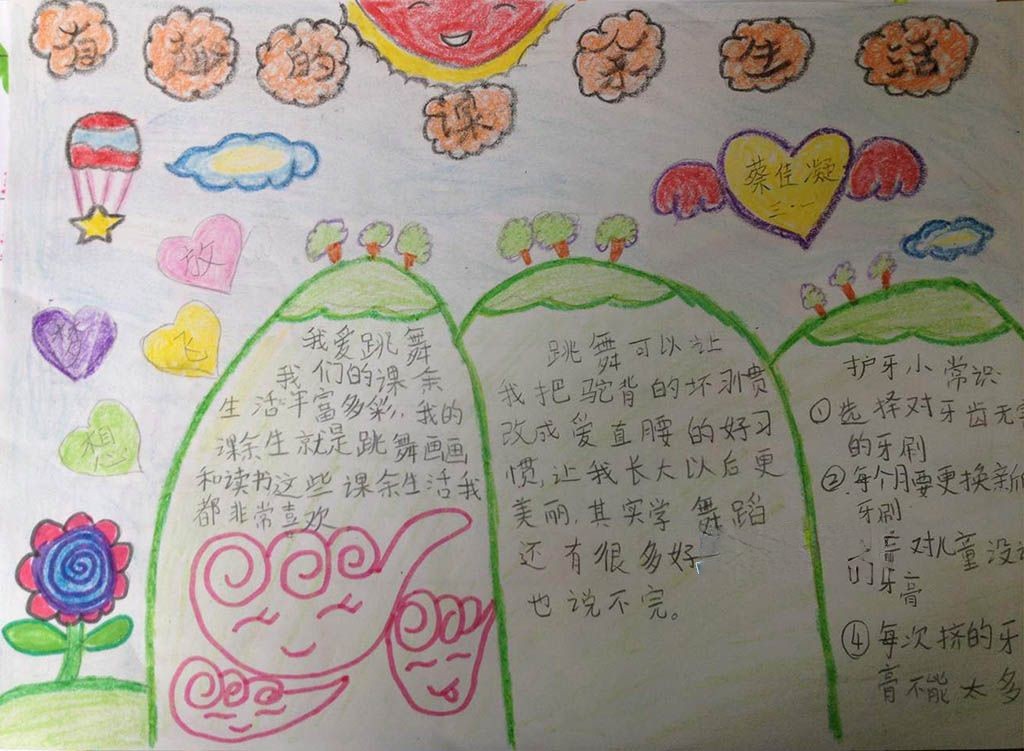 有趣的课余生活
蔡佳凝
三.一
放
飞
梦
想
我爱跳舞
我们的课余
生活丰富多彩，我的
课余生就是跳舞画画
和读书这些课余生活我
都非常喜欢
跳舞可以让
我把驼背的坏习惯
改成爱直腰的好习
惯，让我长大以后更
美丽，其实学舞蹈
还有很多好
也说不完。
护牙小常识:
①选择对牙齿无
的牙刷
②每个月要更换新
牙刷
膏对儿童没
牙膏
④每次挤的牙
膏不能太多